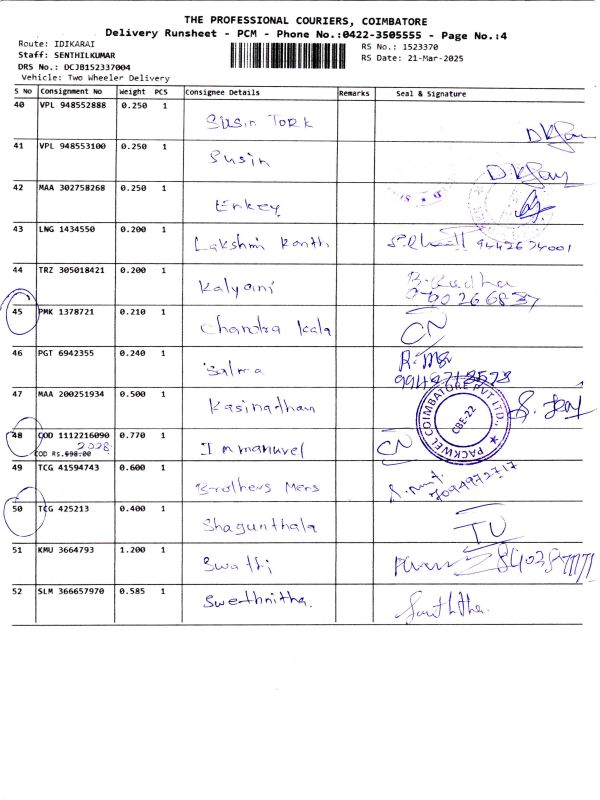 THE PROFESSIONAL COURIERS, COIMBATORE
Delivery Runsheet - PCM - Phone No.:0422-3505555 - Page No.:4
Route: IDIKARAI
RS No.: 1523370
Staff: SENTHILKUMAR
RS Date: 21-Mar-2025
DRS No.: DCJB152337004
Vehicle: Two Wheeler Delivery
S No Consignment No Weight PCS Consignee Details Remarks Seal & Signature
40 VPL 948552888 0.250 1
Susin Tork
41 VPL 948553100 0.250 1
Susin
42 MAA 302758268 0.250 1
Enkey
43 LNG 1434550 0.200 1
Lakshmi Kanth 9442674001
44 TRZ 305018421 0.200 1
Kalyani B. Radha
45 PMK 1378721 0.210 1
Chandra Kala CN
46 PGT 6942355 0.240 1
Salma
47 MAA 200251934 0.500 1
Kasinadham
PACKWEL COIMBATORE PVT LTD.,
CBE-22
48 COD 1112216090 0.770 1
2028
COD Rs.598.00
Immanuvel CN
49 TCG 41594743 0.600 1
Brothers Mens 7094972717
50 TCG 425213 0.400 1
Shagunthala IU
51 KMU 3664793 1.200 1
Swathi
52 SLM 366657970 0.585 1
Swethnitha.